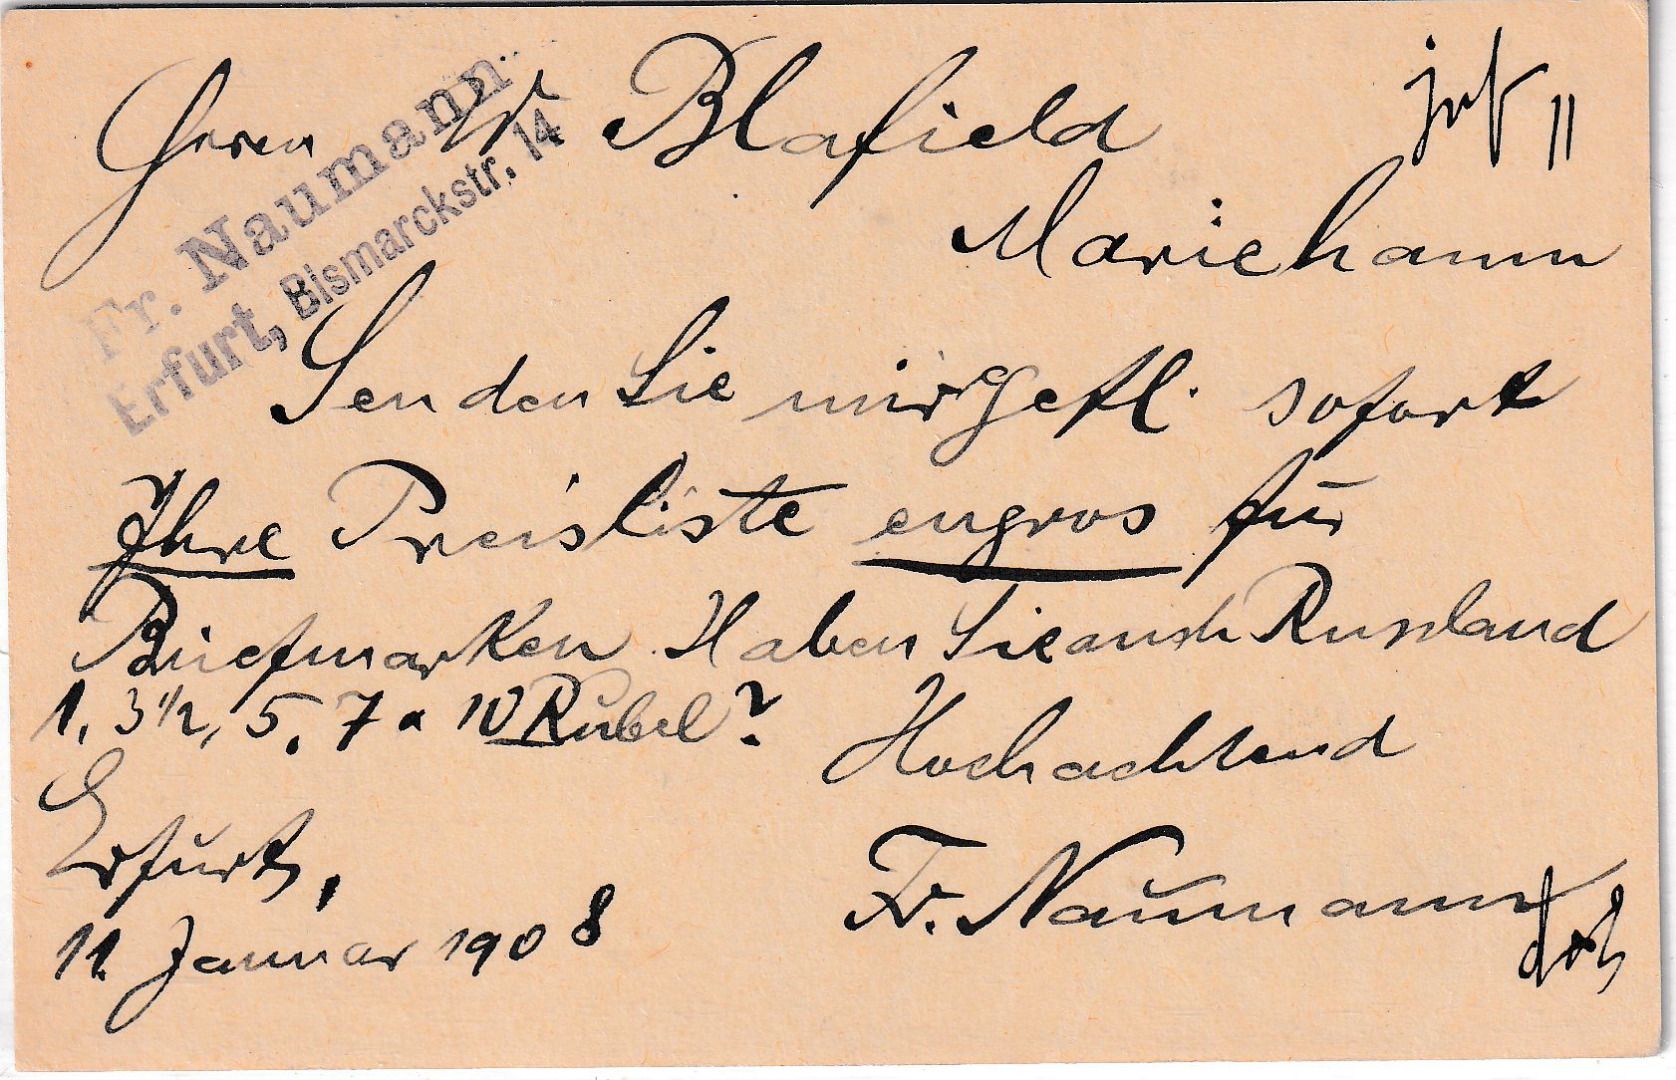 Fr. Naumann
Erfurt, Bismarckstr. 14
Herrn W. Blafield
Mariehamn
Senden Sie mir gefl. sofort
Ihre Preisliste engros für
Briefmarken. Haben Sie auch Russland
1, 3½, 5, 7 a 10 Rubel?
Hochachtend
Erfurt,
Fr. Naumann
11. Januar 1908